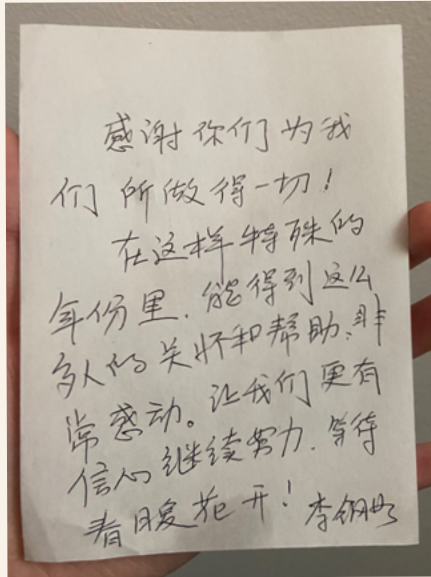 感谢你们为我
们所做得一切!
在这样特殊的
年份里、能得到这么
多人的关怀和帮助、非
常感动。让我们更有
信心继续努力、等待
春暖花开! 李